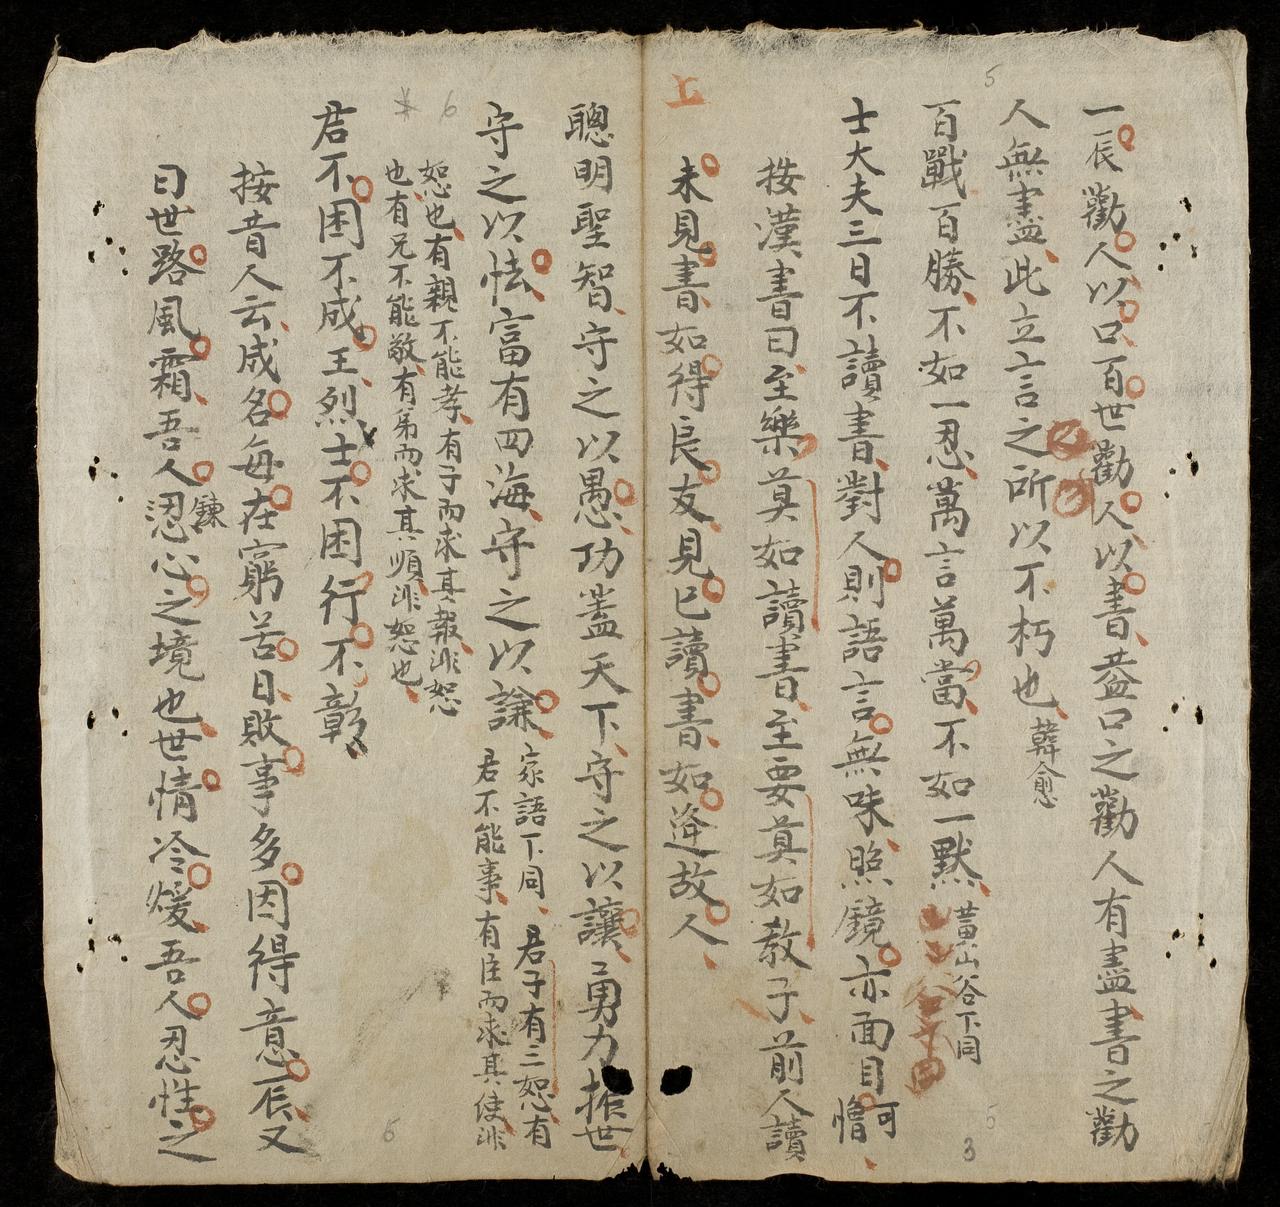 5
一辰勸人以口百世勸人以書葢口之勸人有盡書之勸
人無盡此立言之所以不朽也 韓愈
百戰百勝不如一忍萬言萬當不如一默 黃山谷下同
士大夫三日不讀書對人則語言無味照鏡亦面目可憎
按漢書曰至樂莫如讀書至要莫如教子前人讀
未見書如得良友見已讀書如逢故人
5
3
上
聰明聖智守之以愚功蓋天下守之以讓勇力振世
守之以怯富有四海守之以謙 家語下同 君子有三恕有
君不能事有臣而求其使非
恕也有親不能孝有子而求其報非恕
也有兄不能敬有弟而求其順非恕也
君不困不成王烈士不困行不彰
按昔人云成名每在窮苦日敗事多因得意辰又
曰世路風霜吾人鍊心之境也世情冷煖吾人忍性之
6
6